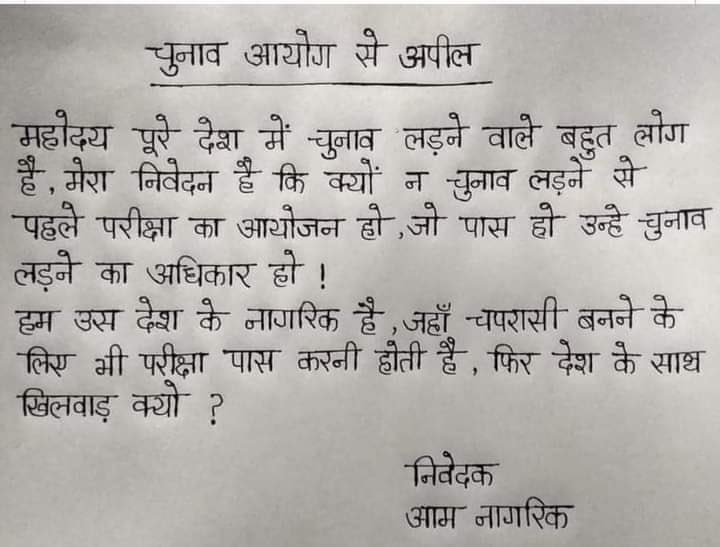 चुनाव आयोग से अपील
महोदय पूरे देश में चुनाव लड़ने वाले बहुत लोग
है, मेरा निवेदन है कि क्यों न चुनाव लड़ने से
पहले परीक्षा का आयोजन हो, जो पास हो उन्हे चुनाव
लड़ने का अधिकार हो !
हम उस देश के नागरिक है, जहाँ चपरासी बनने के
लिए भी परीक्षा पास करनी होती है, फिर देश के साथ
खिलवाड़ क्यो ?
निवेदक
आम नागरिक